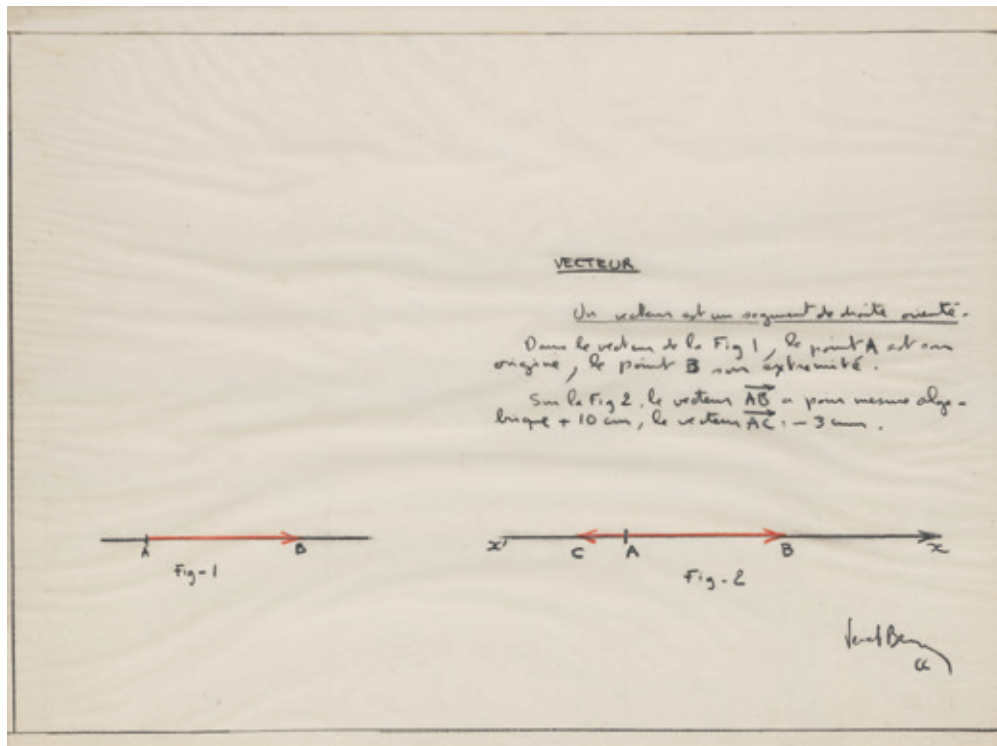 VECTEUR
Un vecteur est un segment de droite orienté.
Dans le vecteur de la Fig 1, le point A est son
origine, le point B son extremité.
Sur la Fig 2, le vecteur AB a pour mesure algé-
brique + 10 cm, le vecteur AC : - 3 cm.
A B
Fig-1
x' C A B x
Fig-2